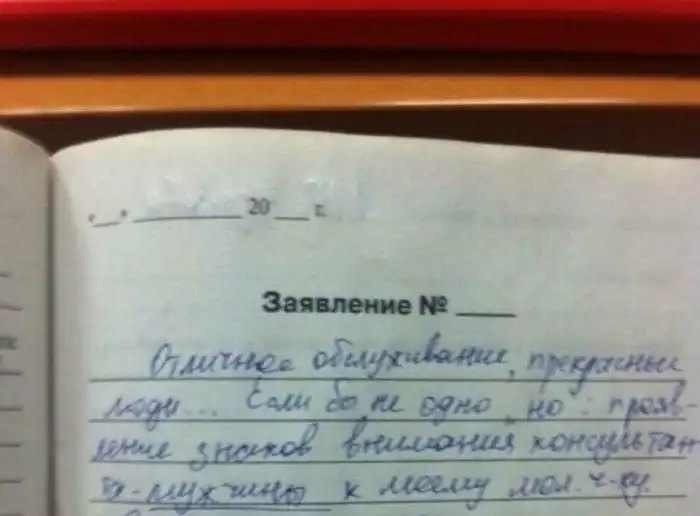 «__» ________ 20 ___ г.
Заявление № ____
Отличное обслуживание, прекрасные
люди... Если бо не одно „но": прояв-
ление знаков внимания консультан-
та-мужчины к моему мол. ч-ку.